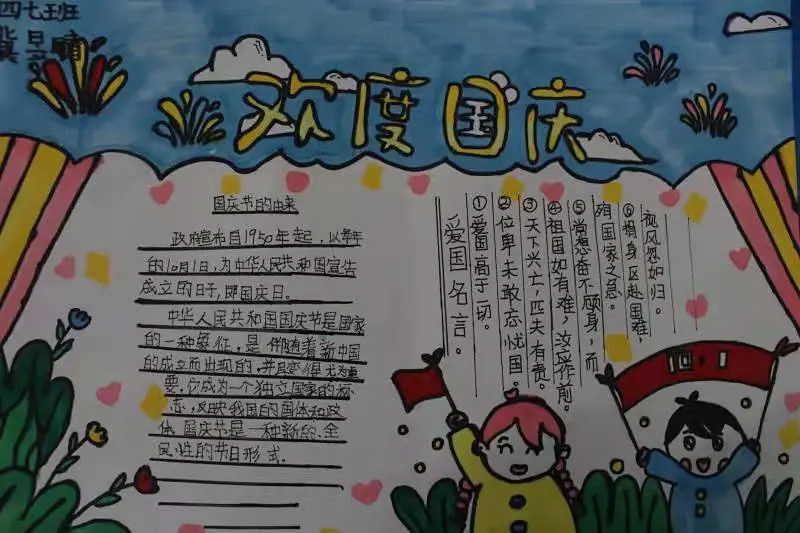 四七班
欢度国庆
国庆节的由来
政府宣布自1950年起，以每年
的10月1日，为中华人民共和国宣告
成立的日子，即国庆日。
中华人民共和国国庆节是国家
的一种象征，是伴随着新中国
的成立而出现的，并且变得尤为重
要，它成为一个独立国家的标
志，反映我国的国体和政
体．国庆节是一种新的、全
民性的节日形式．
爱国名言。
①爱国高于一切。
②位卑未敢忘忧国。
③天下兴亡，匹夫有责。
④祖国如有难，汝应作前。
⑤常想奋不顾身，而
殉国家之急。
⑥捐躯赴国难，
视风忽如归。
10.1